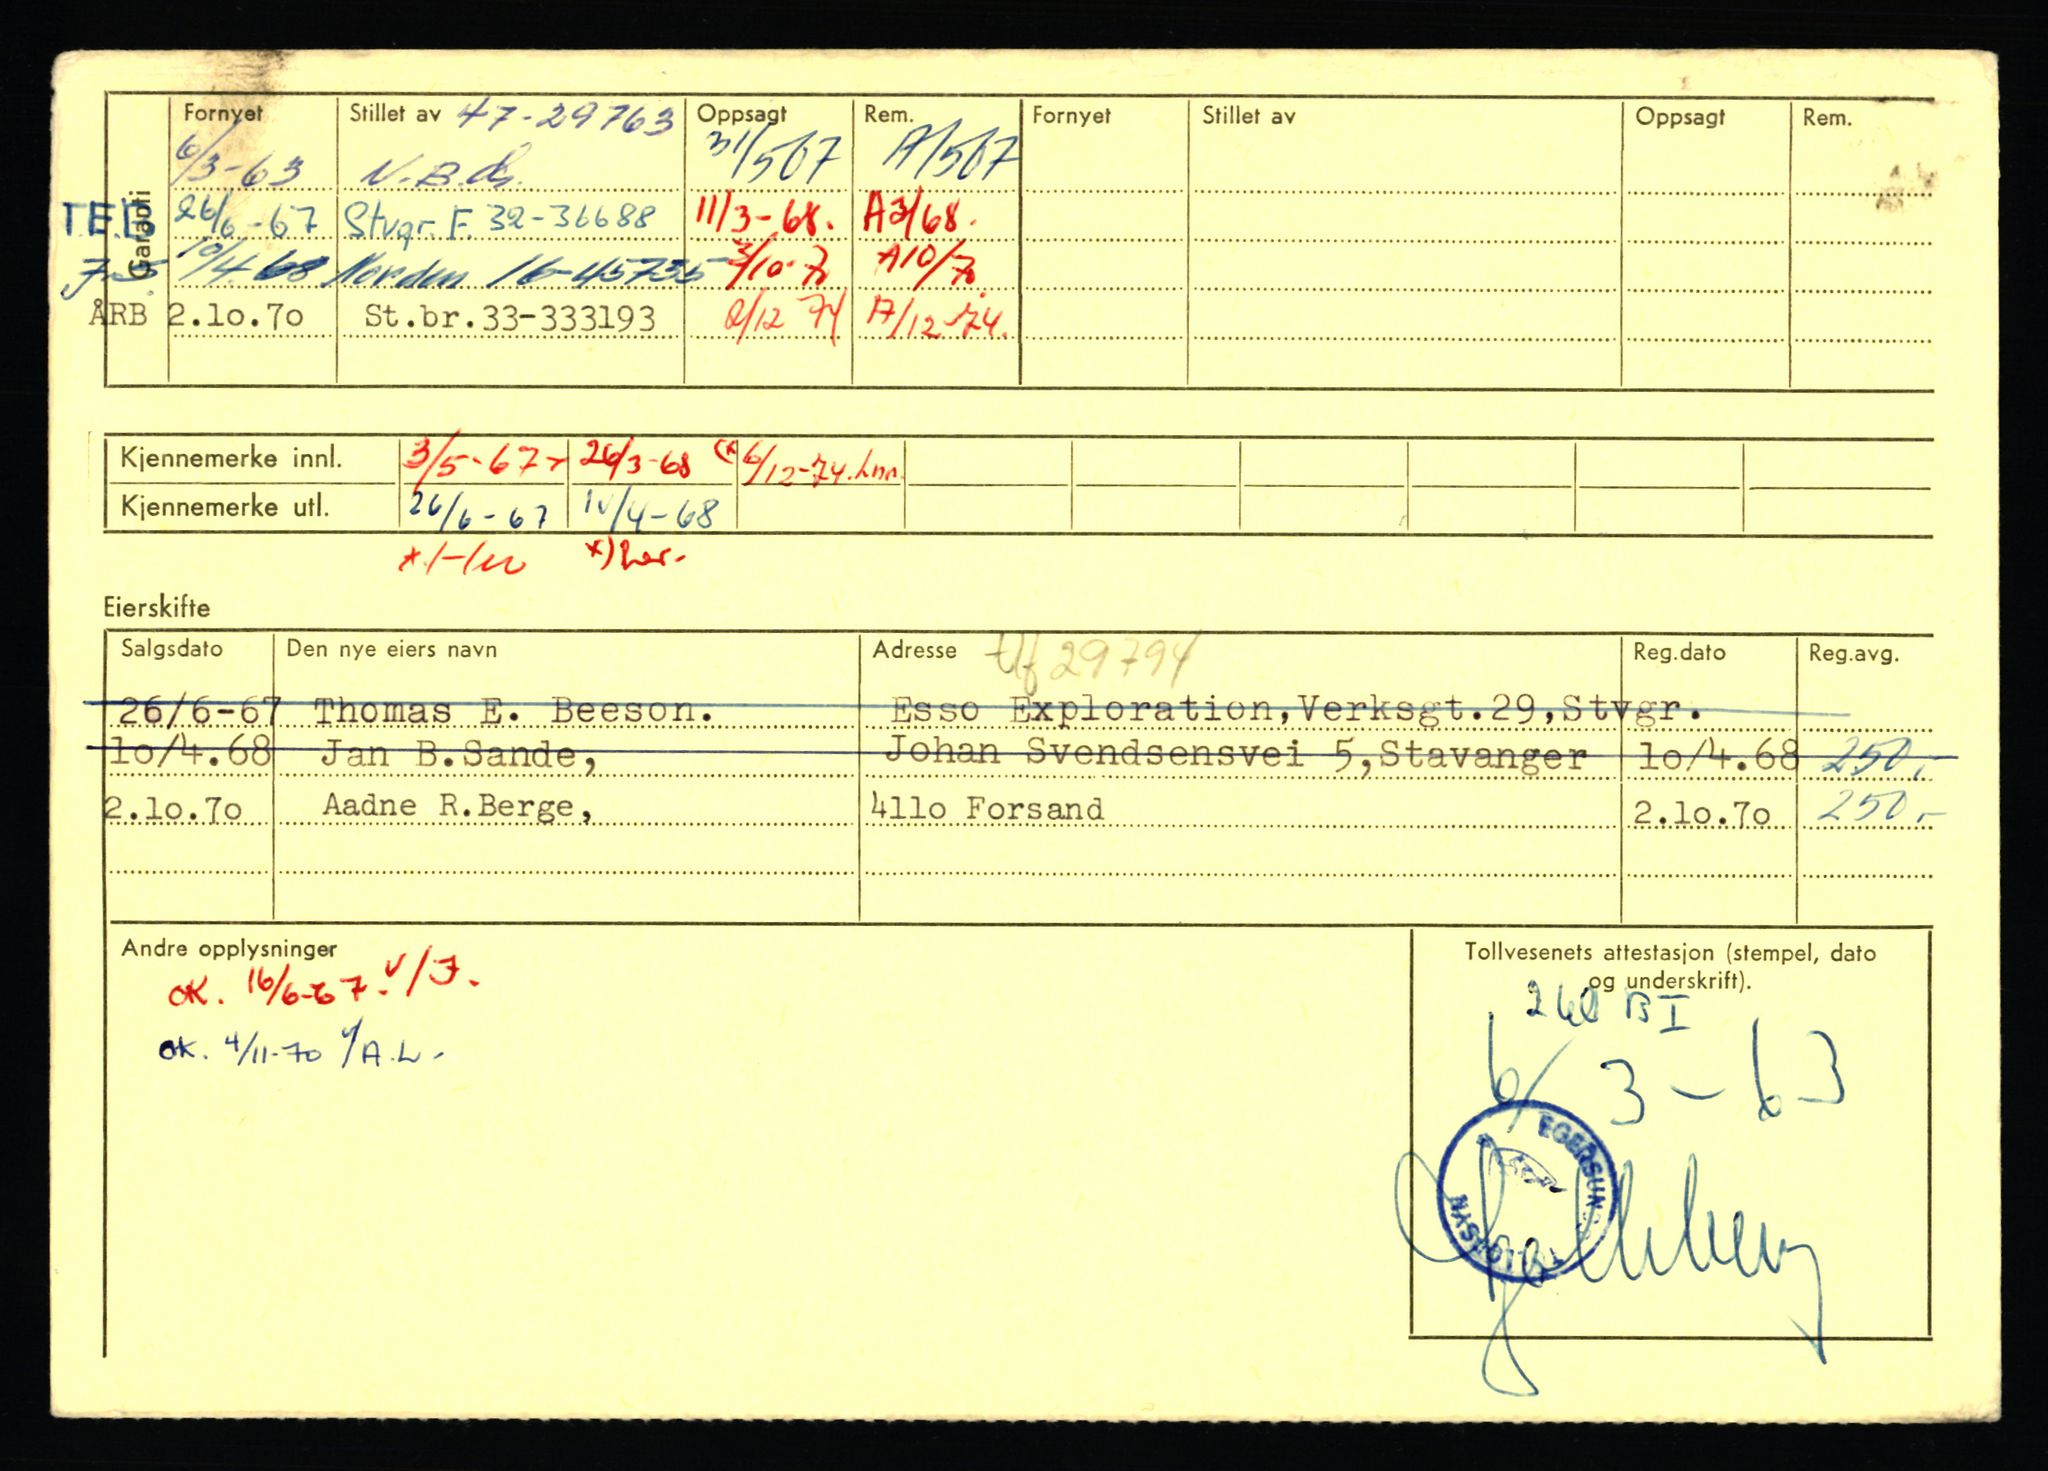 Fornyet Stillet av 47-29763 Oppsagt Rem. Fornyet Stillet av Oppsagt Rem.
Garanti
6/3-63 31/567 A/567
TEB 26/6-67 Stvgr. F. 32-36688 11/3-68. A3/68.
10/4.68 Norden 16-45735 A10/70
ÅRB 2.10.70 St.br.33-333193 12 74 A/12-74.
Kjennemerke innl. 3/5-67 26/3-68 (x 6/12-74.
Kjennemerke utl. 26/6-67 10/4-68
Eierskifte
Salgsdato Den nye eiers navn Adresse tlf 29794 Reg.dato Reg.avg.
26/6-67 Thomas E. Beeson. Esso Exploration,Verksgt.29,Stvgr.
10/4.68 Jan B.Sande, Johan Svendsensvei 5,Stavanger 10/4.68 250,-
2.10.70 Aadne R.Berge, 4110 Forsand 2.10.70 250,-
Andre opplysninger
OK. 16/6-67. v/J.
OK. 4/11-70 v/A.L.
Tollvesenets attestasjon (stempel, dato
og underskrift).
260 B I
6/3-63
EGERSUN